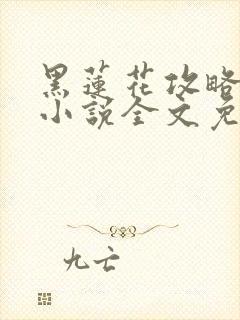 黑蓮花攻略
小說全文免
九亡